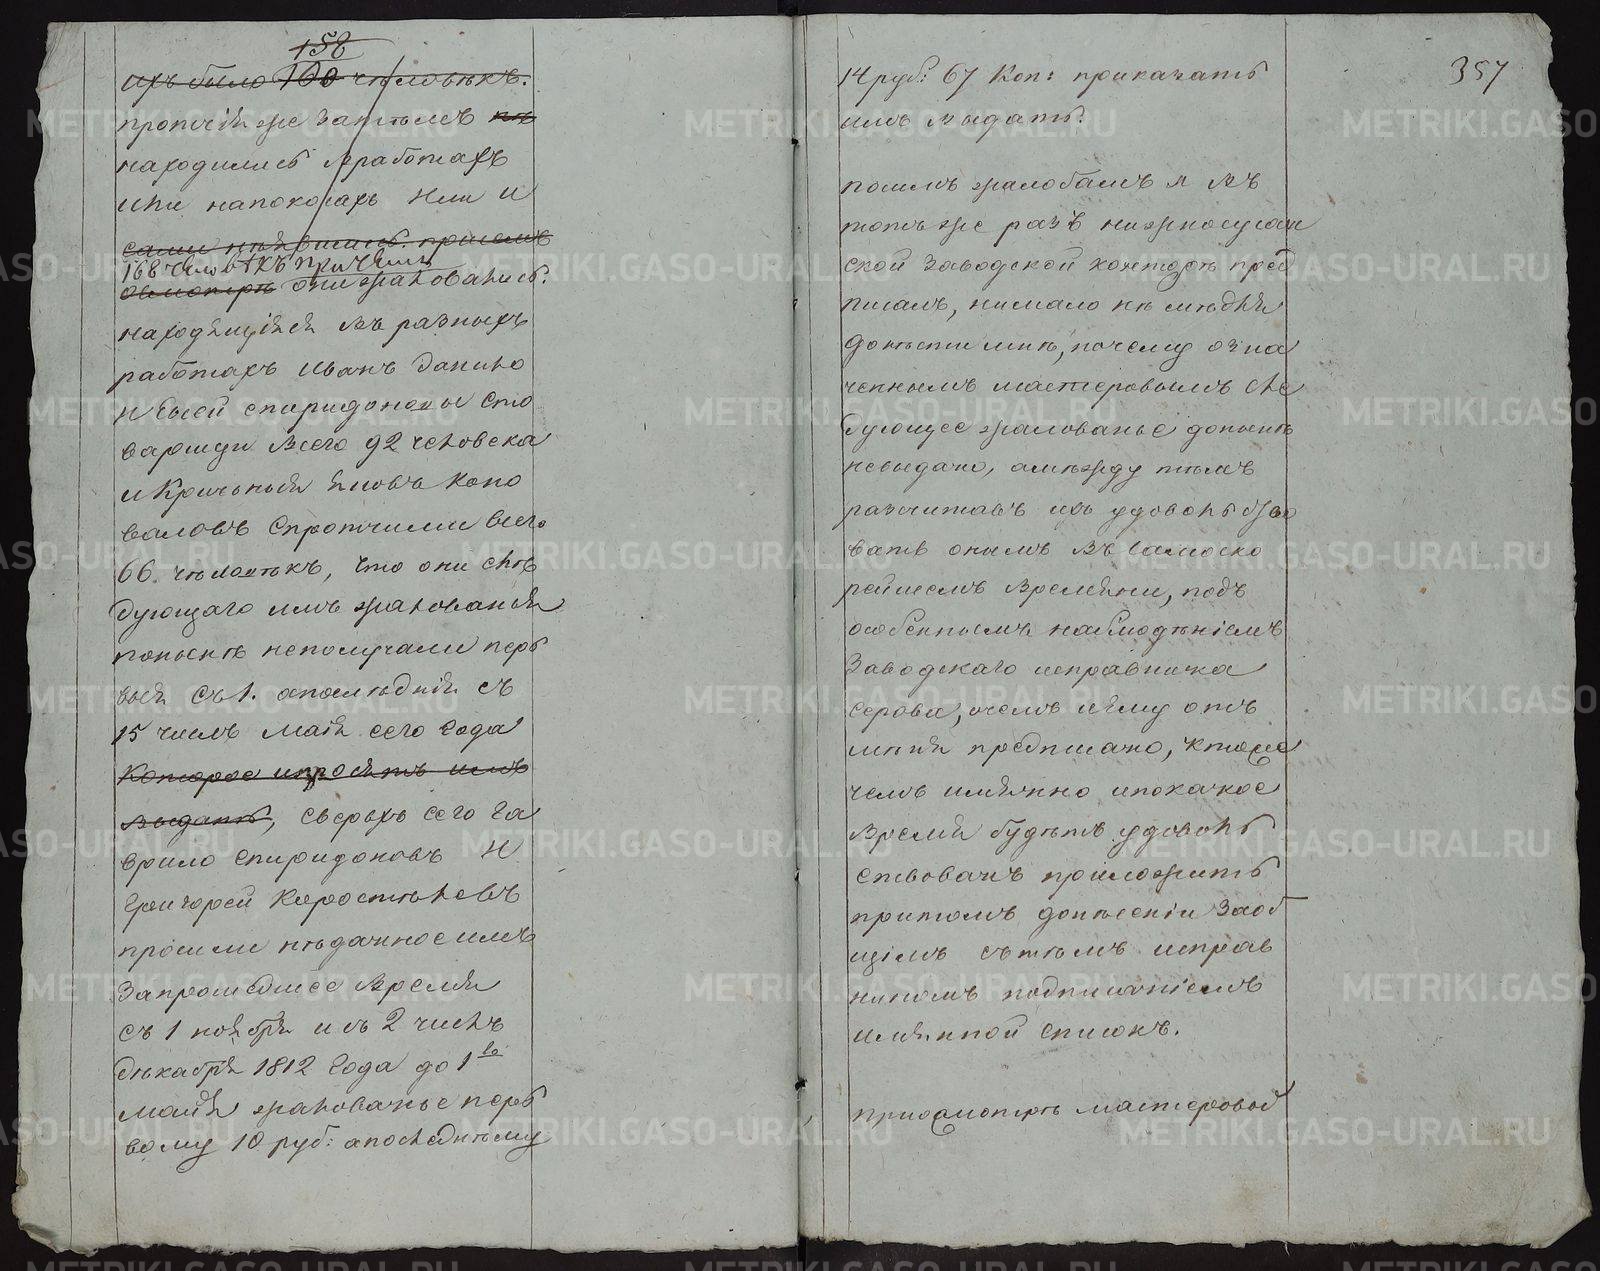 158
ихъ было 100 человѣкъ.
протчія же затѣмъ не
находились вработахъ
или напокосахъ или и
сами неявились. присемъ
168 человѣкъ причемъ
осмотрѣ они жаловались.
находящіяся въ разныхъ
работахъ Иванъ Данило
и Евсей спиридоновы сто
варищи всего 92 человека
и Кричныя Яковъ Коно
валовъ спротчими всего
66. человѣкъ, что они слѣ
дующаго имъ жалованья
понынѣ неполучали перв
выя съ 1. апослѣднія съ
15 числъ Маія сего года
которое и просятъ имъ
выдать, сверхъ сего Га
врило спиридоновъ и
Григорей Коростелевъ
просили недачное имъ
Запрошедшее время
съ 1 ноября и съ 2 числъ
декабря 1812 года до 1го
маія жалованье перв
вому 10 руб: апоследнему
357
14 руб: 67 Коп: приказать
имъ выдать.
посимъ жалобамъ я въ
тотъ же разъ нижносусан
ской Заводской конторѣ пред
писалъ, нимало не медля
донести мнѣ, почему озна
ченнымъ мастеровымъ слѣ
дующее жалованье донынѣ
невыдано, амежду тѣмъ
разчитавъ ихъ удовольство
вать онымъ въ самоско
рейшемъ времяни, подъ
особеннымъ наблюденіемъ
Заводскаго исправника
серова, очемъ иему отъ
меня предписано, ктоже
чемъ имянно ипокакое
время будетъ удовольст
ствованъ приложить
притомъ донесеніи Заоб
щимъ сътемъ исправ
никомъ подписаніемъ
имянной списокъ.
Приосмотрѣ мастеровой
METRIKI.GASO-URAL.RU